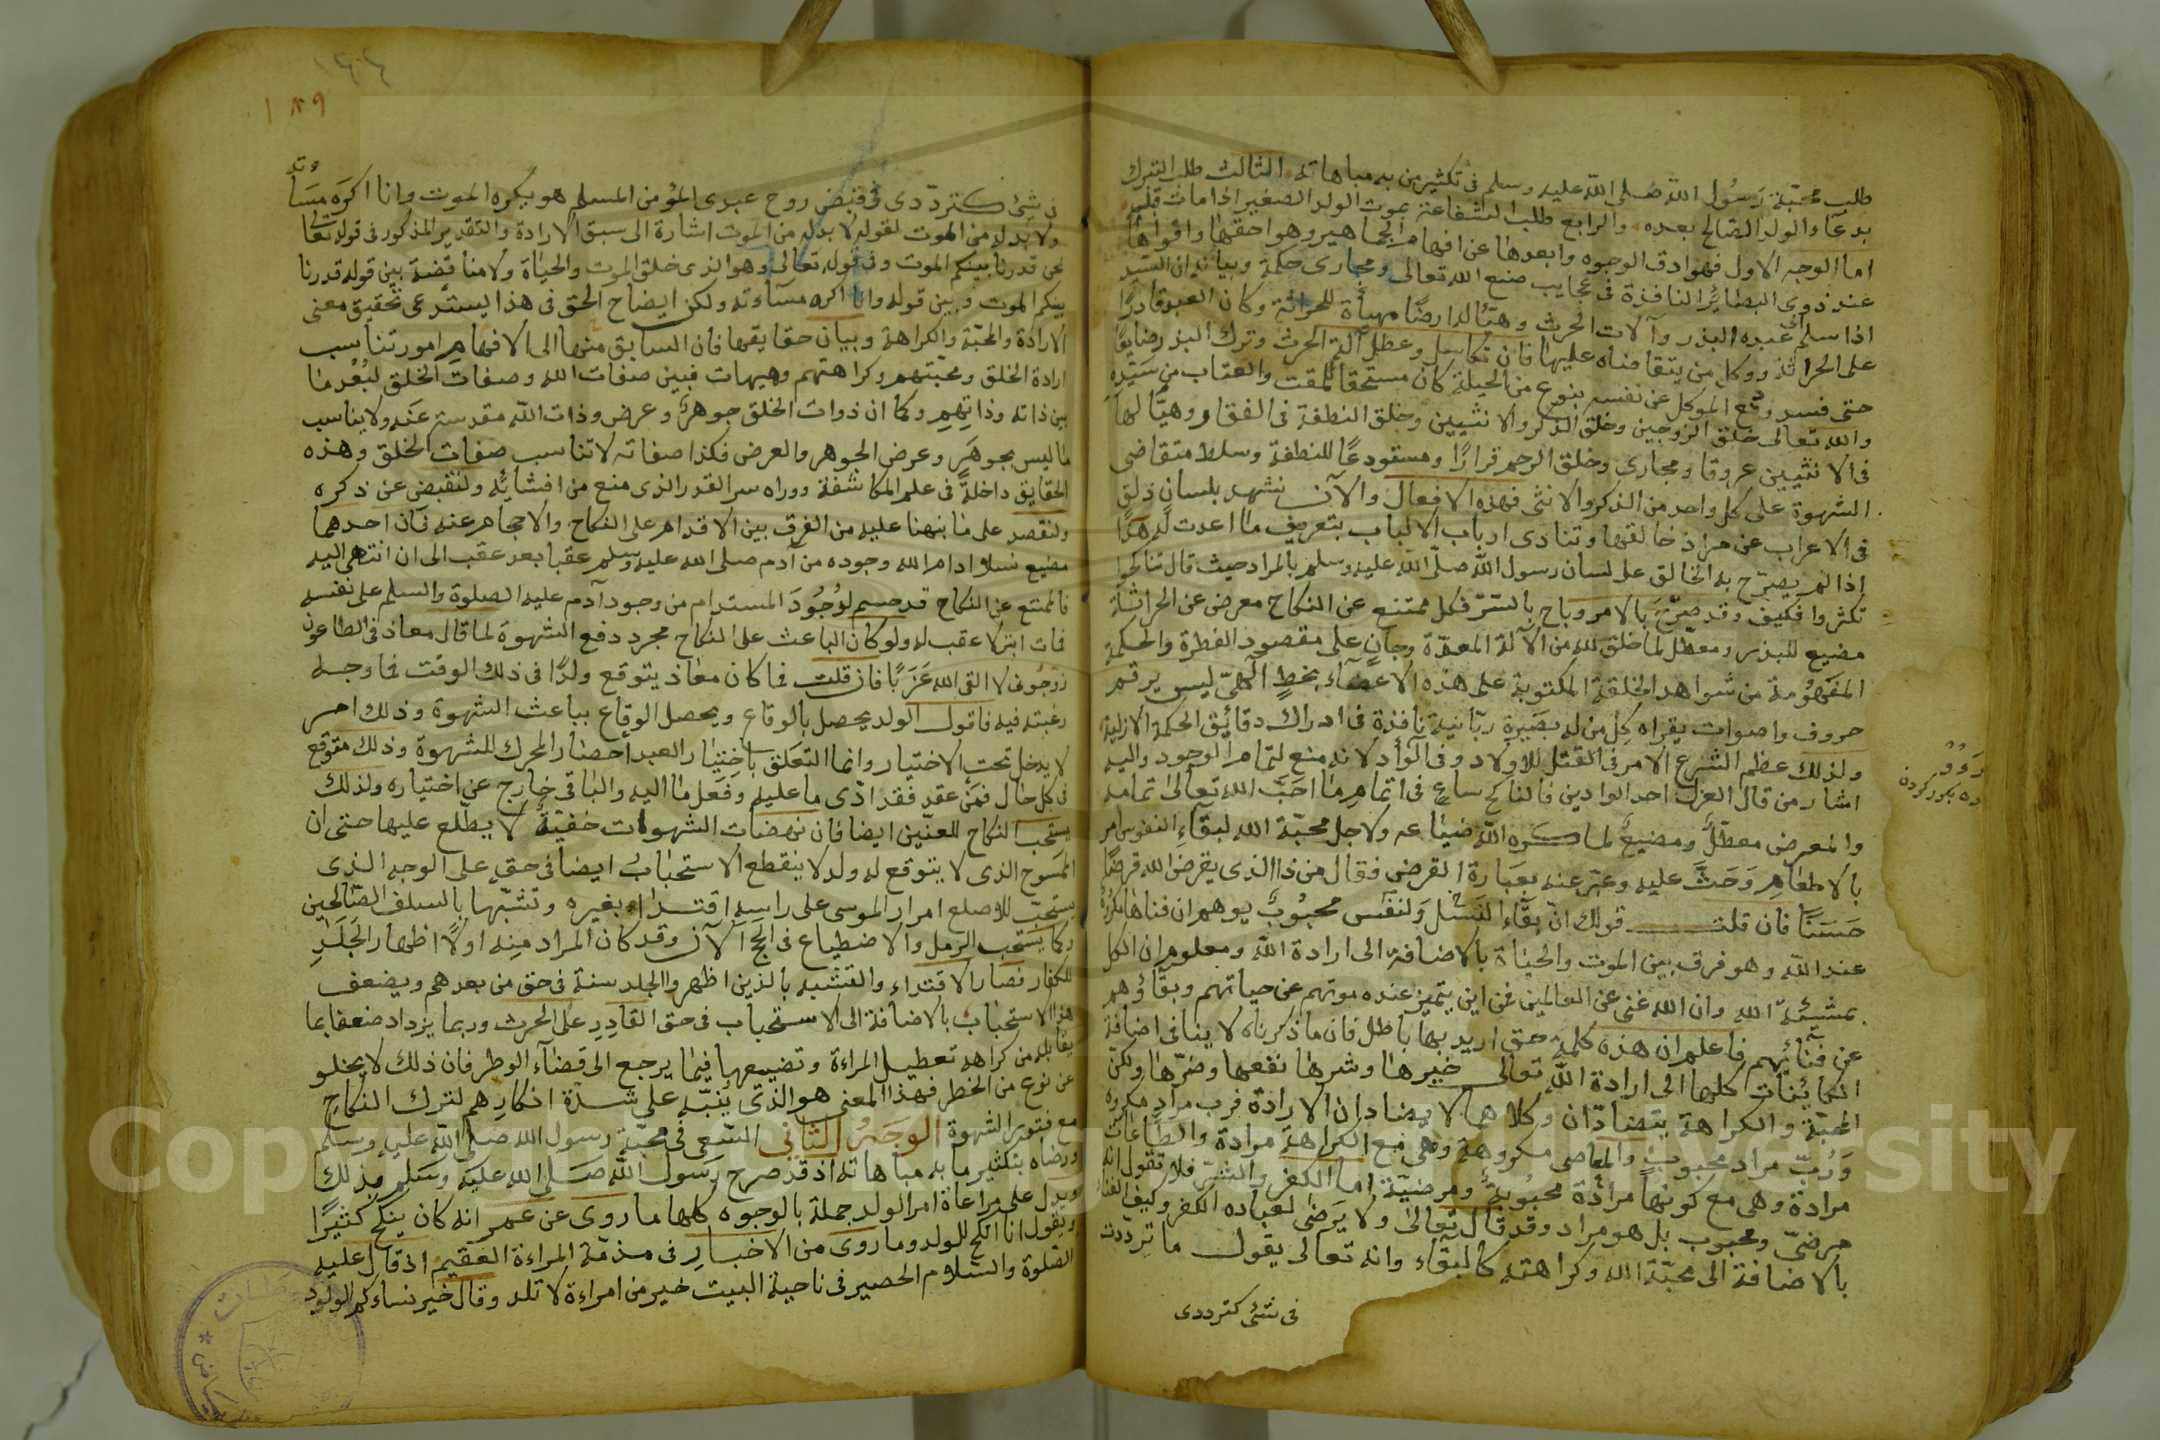 طلب محبّة رسول الله صلى الله عليه وسلم فى تكثير من به مباهاته الثالث طلب التبرك
بدعاء الولد الصالح بعده والرابع طلب الشفاعة بموت الولد الصغير اذا مات قبله
اما الوجه الاول فهو ادق الوجوه وابعدها عن افهام الجماهير وهو احقها واقواها
عند ذوى البصائر النافذة فى عجايب صنع الله تعالى ومجارى حكمة وبيانه ان السيد
اذا سلم عبده البذر وآلات الحرث وهيّأ له ارضًا مهيأة للحراثة وكان العبد قادرًا
على الحراثة ووكل من يتقاضاه عليها فان تكاسل وعطل آلة الحرث وترك البذر ضايعًا
حتى فسد ودفع الموكل عن نفسه بنوع من الحيلة كان مستحقا للمقت والعتاب من سيّده
والله تعالى خلق الزوجين وخلق الذكر والانثيين وخلق النطفة فى الفقار وهيّا لها
فى الانثيين عروقا ومجارى وخلق الرحم قرارًا ومستودعًا للنطفة وسلط متقاضى
الشهوة على كل واحد من الذكر والانثى فهذه الافعال والآن تشهد بلسان ذلق
فى الاعراب عن مراد خالقها وتنادى ارباب الالباب بتعريف ما اعدت له هذا
اذا لم يصرّح به الخالق على لسان رسول الله صلّى الله عليه وسلم بالمراد حيث قال تناكحوا
تكثروا فكيف وقد صرّح بالامر وباح بالسرّ فكل ممتنع عن النكاح معرض عن الحراثة
مضيع للبذر ومعطّل لما خلق الله من الآلة المعدّة وجان على مقصود الفطرة والحكمة
المفهومة من شواهد الخلقة المكتوبة على هذه الاعضاء بخط الهىّ ليس برقم
حروف واصوات يقراه كل من له بصيرة ربّانية نافذة فى ادراك دقائق الحكمة الازلية
ولذلك عظم الشرع الامر فى القتل للاولاد وفى الوأد لانه منع لتمام الوجود واليه
اشار من قال العزل احد الوادين فالناكح ساعٍ فى اتمام ما احبّ الله تعالى تمامه
والمعرض معطّلٌ ومضيعٌ لما كره الله ضياعه ولاجل محبّة الله لبقاء النفوس امر
بالاطعام وحثّ عليه وعبّر عنه بعبارة القرض فقال من ذا الذى يقرض الله قرضًا
حسنًا فان قلت قولك انّ بقاء النسل والنفس محبوبٌ يوهم ان فناها مكروه
عند الله وهو فرق بين الموت والحياة بالاضافة الى ارادة الله ومعلوم ان الكل
بمشيّة الله وان الله غنى عن العالمين فمن اين يتميز عنده موتهم عن حياتهم وبقاؤهم
عن فنائهم فاعلم ان هذه كلمة حق اريد بها باطل فان ما ذكرناه لا ينافى اضافة
الكاينات كلها الى ارادة الله تعالى خيرها وشرها نفعها وضرّها ولكن
المحبّة والكراهة يتضادان وكلاهما لا يضادان الارادة فرب مراد مكروه
وربّ مراد محبوب والمعاصى مكروهة وهى مع الكراهة مرادة والطاعات
مرادة وهى مع كونها مرادة محبوبة ومرضيّة اما الكفر والشرّ فلا تقول انه
مرضىّ ومحبوب بل هو مراد وقد قال تعالى ولا يرضى لعباده الكفر وكيف الفناء
بالاضافة الى محبّة الله وكراهته كالبقاء وانه تعالى يقول ما تردّدت
فى شئ كترددى
وءد
فى شئ كتردّدى فى قبض روح عبدى المؤمن المسلم هو يكره الموت وانا اكره مساءته
ولا بد له من الموت لقوله لا بد له من الموت اشارة الى سبق الارادة والتقدير المذكور فى قوله تعالى
نحن قدرنا بينكم الموت وفى قوله تعالى وهو الذى خلق الموت والحياة ولا مناقضة بين قوله قدرنا
بينكم الموت وبين قوله وانا اكره مساءته ولكن ايضاح الحق فى هذا يستدعى تحقيق معنى
الارادة والمحبّة والكراهة وبيان حقايقها فان السابق منها الى الافهام امور تناسب
ارادة الخلق ومحبّتهم وكراهتهم وهيهات فبين صفات الله وصفات الخلق لبُعْد ما
بين ذاته وذاتهم وكما ان ذوات الخلق جوهر وعرض وذات الله مقدسة عنه ولا يناسب
ما ليس بجوهر وعرض الجوهر والعرض فكذا صفاته لا تناسب صفات الخلق وهذه
الحقايق داخلة فى علم المكاشفة ووراه سر القدر الذى منع من افشائه ولنقبض عن ذكره
ولنقصد على ما نبهنا عليه من الفرق بين الاقدام على النكاح والاحجام عنه فان احدهما
مضيع نسلا ادام الله وجوده من آدم صلى الله عليه وسلم عقبا بعد عقب الى ان انتهى اليه
فالممتنع عن النكاح قد حسم لوجود المستدام من وجود آدم عليه الصلوة والسلم على نفسه
فمات ابتر لا عقب له ولو كان الباعث على النكاح مجرد دفع الشهوة لما قال معاذ فى الطاعون
زوجونى لا القى الله عزبًا فان قلت فما كان معاذ يتوقع ولدًا فى ذلك الوقت فما وجه
رغبته فيه فاقول الولد يحصل بالوقاع ويحصل الوقاع بباعث الشهوة وذلك امر
لا يدخل تحت الاختيار وانما التعلق باختيار العبد احضار المحرك للشهوة وذلك متوقع
فى كل حال فمن عقد فقد ادّى ما عليه وفعل ما اليه والباقى خارج عن اختياره ولذلك
يستحب النكاح للعنّين ايضا فان نهضات الشهوات خفيّة لا يطّلع عليها حتى ان
الممسوح الذى لا يتوقع له ولد لا ينقطع الاستحباب ايضا فى حقه على الوجه الذى
يستحبّ للاصلع امرار الموسى على راسه اقتداء بغيره وتشبّها بالسلف الصالحين
وكما يستحب الرمل والاضطباع فى الحج الآن وقد كان المراد منه اولًا اظهار الجلد
للكفار فصار الاقتداء والتشبه بالذين اظهروا الجلد سنة فى حق من بعدهم ويضعف
هذا الاستحباب بالاضافة الى الاستحباب فى حق القادر على الحرث وربما يزداد ضعفا بما
يقابله من كراهة تعطيل المراءة وتضييعها فيما يرجع الى قضاء الوطر فان ذلك لا يخلو
عن نوع من الخطر فهذا المعنى هو الذى ينبّه على شدّة انكارهم لترك النكاح
مع فتور الشهوة الوجه الثانى السّعى فى محبّة رسول الله صلى الله عليه وسلم
ورضاه بتكثير ما به مباهاته اذ قد صرح رسول الله صلى الله عليه وسلم بذلك
ويدل على مراعاة امر الولد جملة بالوجوه كلها ما روى عن عمر انه كان ينكح كثيرًا
ويقول انا انكح للولد وما روى من الاخبار فى مذمّة المراءة العقيم اذ قال عليه
الصلوة والسلام الحصير فى ناحية البيت خير من امراءة لا تلد وقال خير نساءكم الولود
١٨٩
Copyright © King Saud University